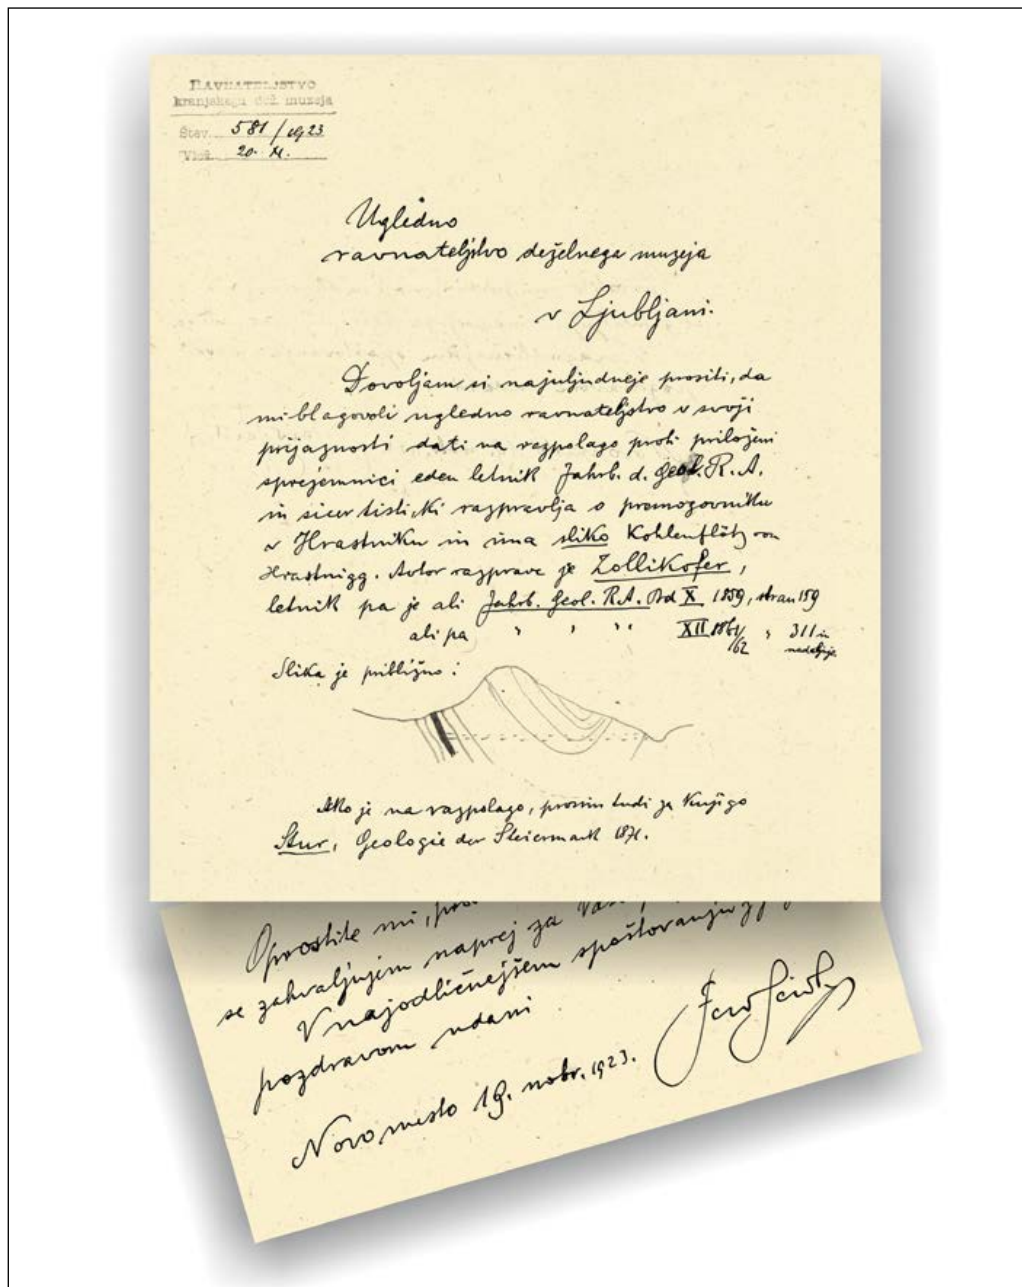 RAVNATELJSTVO
kranjskega dež. muzeja
Štev. 581/1923
20. XI.
Ugledno
ravnateljstvo deželnega muzeja
v Ljubljani.
Dovoljam si najuljudneje prositi, da
mi blagovoli ugledno ravnateljstvo v svoji
prijaznosti dati na razpolago proti priloženi
sprejemnici eden letnik Jahrb. d. Geol. R. A.
in sicer tisti, ki razpravlja o premogovniku
v Hrastniku in ima sliko Kohlenflötz von
Hrastnigg. Avtor razprave je Zollikofer,
letnik pa je ali Jahrb. Geol. R. A. Bd X 1859, stran 159
ali pa " " " XII 1861/62 " 311 in
nadaljnje
Slika je približno:
Ako je na razpolago, prosim tudi za knjigo
Stur, Geologie der Steiermark 1871.
Oprostite mi,
se zahvaljujem naprej za
V najodličnejšem spoštovanju
pozdravom udani
Novo mesto 19. nobr. 1923.
Ferd Seidl